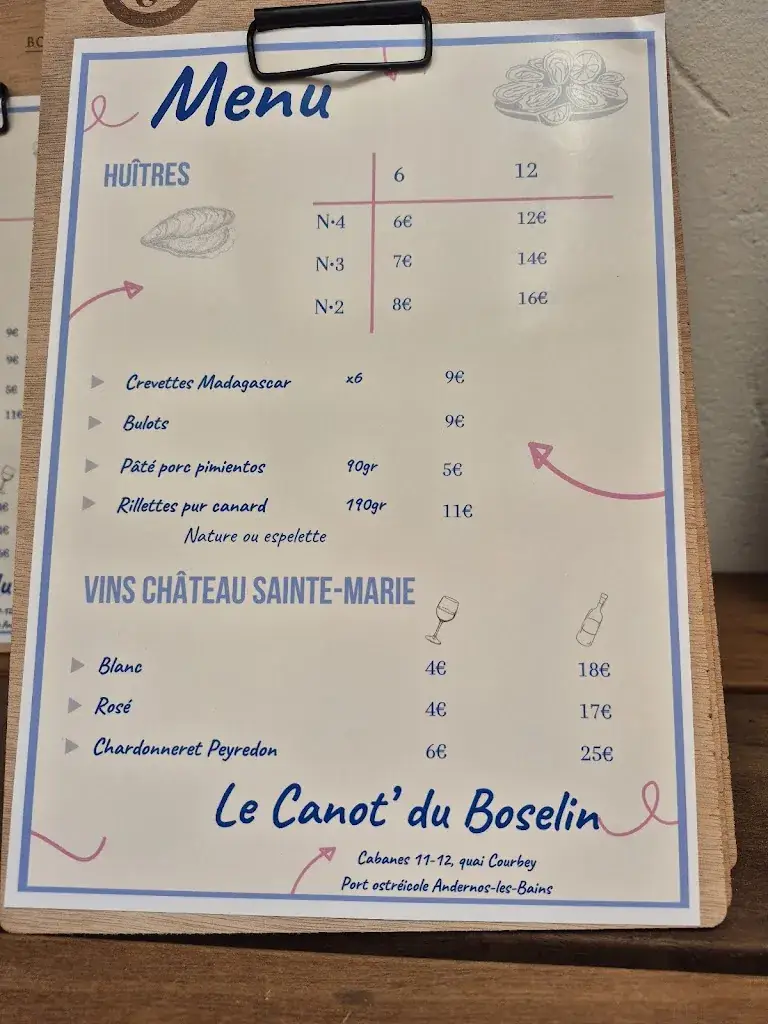 BO
Menu
HUÎTRES
6 12
N·4 6€ 12€
N·3 7€ 14€
N·2 8€ 16€
Crevettes Madagascar x6 9€
Bulots 9€
Pâté porc pimientos 90gr 5€
Rillettes pur canard 190gr 11€
Nature ou espelette
VINS CHÂTEAU SAINTE-MARIE
Blanc 4€ 18€
Rosé 4€ 17€
Chardonneret Peyredon 6€ 25€
Le Canot' du Boselin
Cabanes 11-12, quai Courbey
Port ostréicole Andernos-les-Bains
9€
9€
5€
11€